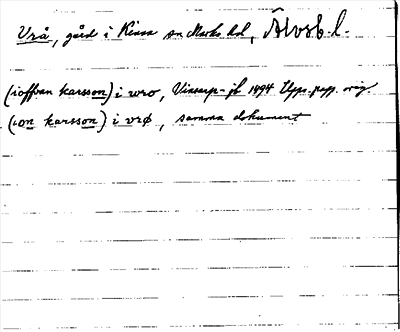 Vrå, gård i Kinna sn Marks hd, Älvsb l.
(ioffvan karsson) i wro, Vinsarp-jb 1494 Upps. papp. orig.
(ion karsson) i vrø, samma dokument